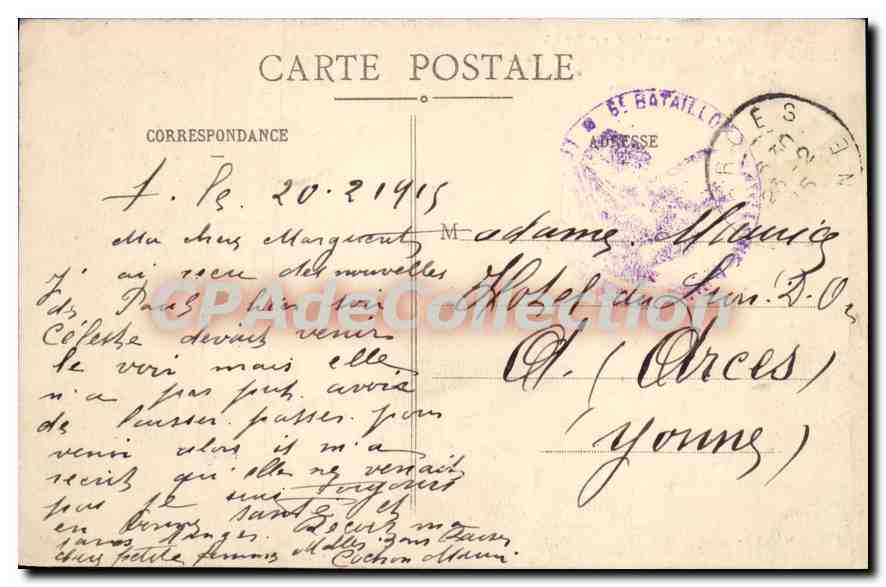 CARTE POSTALE
CORRESPONDANCE
ADRESSE
5E BATAILLO
20.2.1915
Ma cher Marguerite
j'ai recu des nouvelles
de Paul hier soir
Céleste devait venir
le voir mais elle
n'a pas put avoir
de laisser-passer pour
venir alors il m'a
recrit qu'elle ne venait
pas je suis toujours
en bonne santé et
sans danger. Recoit ma
cher petite femme Mille bons baiser
Madame Maurice
Hotel du Lion D. O.
A. (Arces)
Yonne)
CPAdeCollection